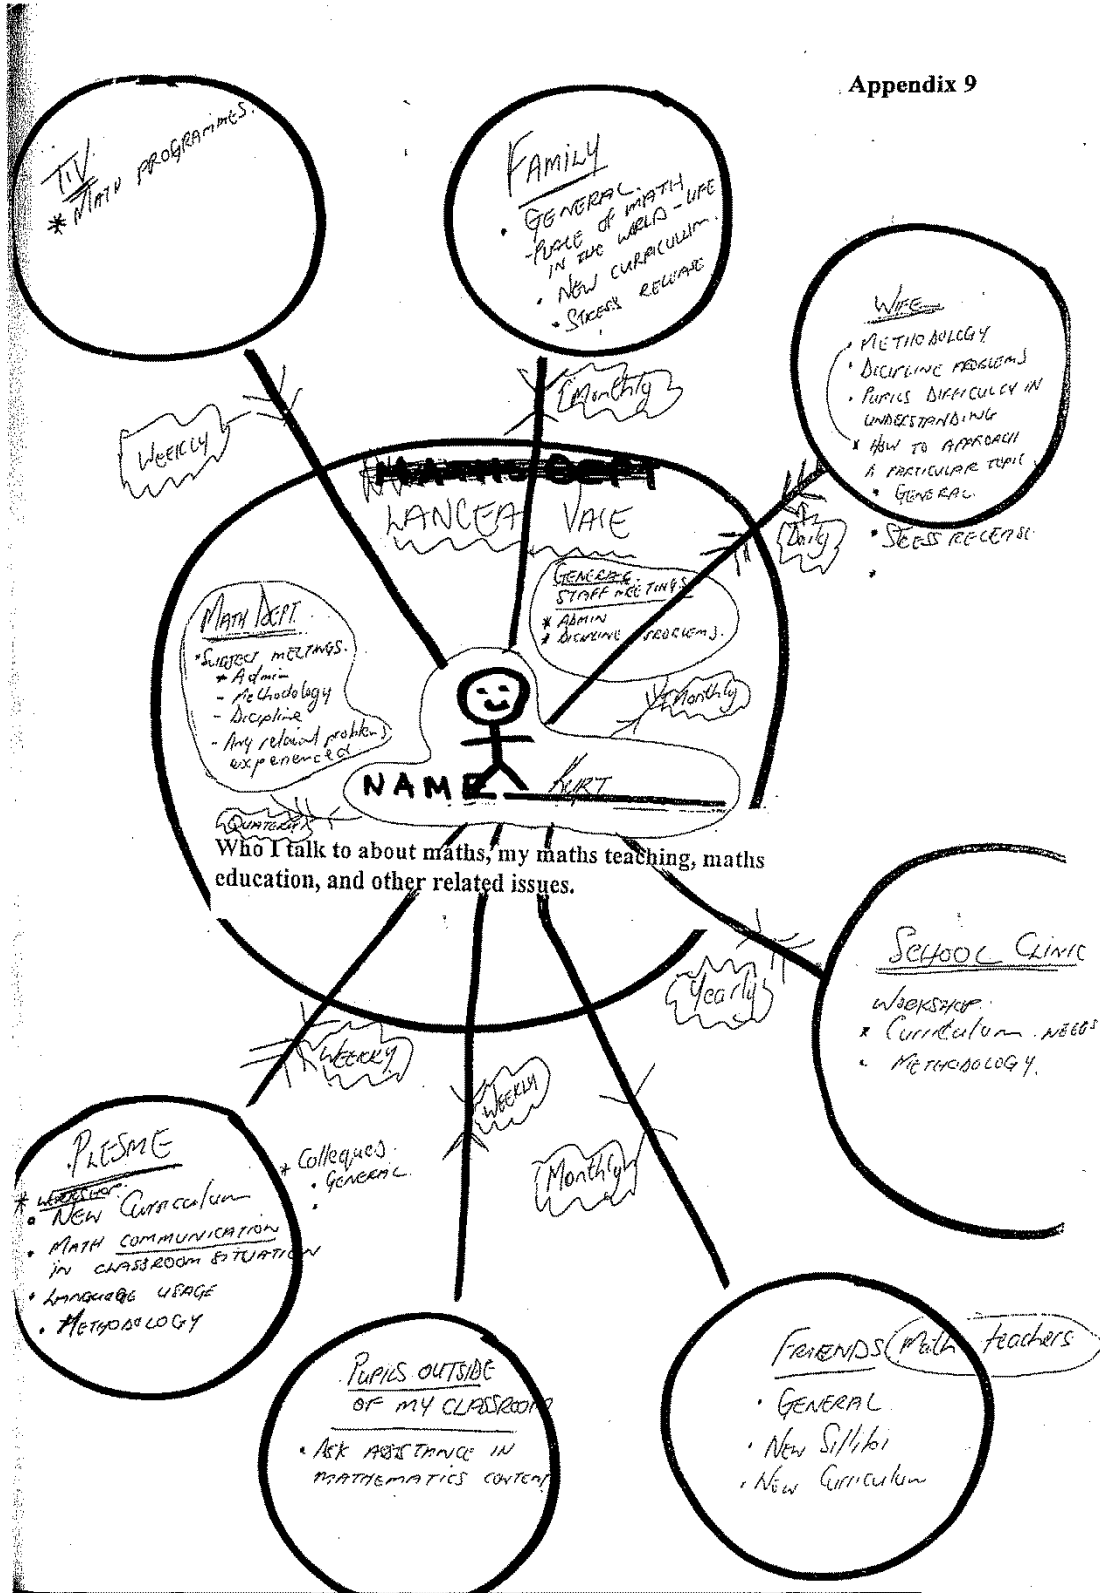 Appendix 9
T.V.
* MATH PROGRAMMES.
FAMILY
• GENERAL.
- PLACE OF MATH
IN THE WORLD - LIFE
• NEW CURRICULUM
• STRESS RELEASE
WIFE
• METHODOLOGY
• DICIPLINE PROBLEMS
• PUPILS DIFFICULTY IN
UNDERSTANDING
* HOW TO APPROACH
A PARTICULAR TOPIC
• GENERAL
• STRESS RELEASE
Weekly
Monthly
Daily
MATHS DEPT
LANCEA VALE
MATH DEPT.
* SUBJECT MEETINGS.
* Admin
- Methodology
- Dicipline
- Any related problems
experienced
GENERAL
STAFF MEETINGS
* ADMIN
* DICIPLINE PROBLEMS.
Monthly
NAME KURT
QUATERLY
Who I talk to about maths, my maths teaching, maths
education, and other related issues.
Yearly
SCHOOL CLINIC
WORKSHOP.
* Curriculum NEEDS
• METHODOLOGY.
WEEKLY
WEEKLY
Monthly
PLESME
* WORKSHOP.
• NEW Curriculum
• MATH COMMUNICATION
IN CLASSROOM SITUATION
• LANGUAGE USAGE
• METHODOLOGY
* Colleques.
• GENERAL
PUPILS OUTSIDE
OF MY CLASSROOM
• ASK ASSISTANCE IN
MATHEMATICS CONTENT
FRIENDS (Math teachers
• GENERAL
• New Sillibi
• New Curriculum